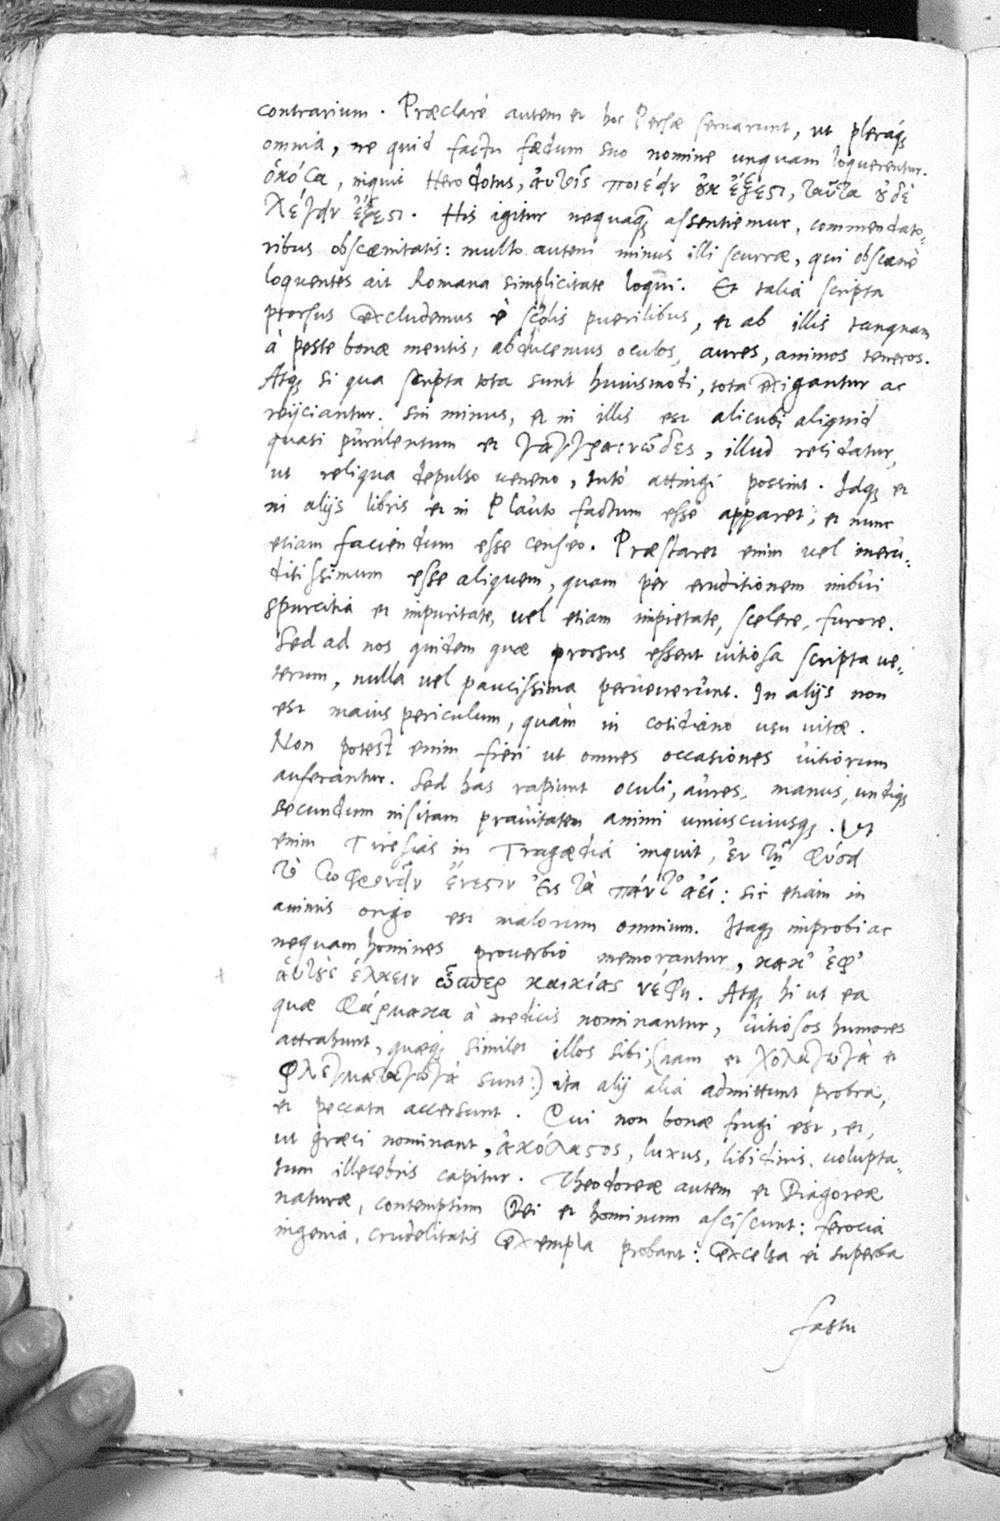 contrarium. Præclarè autem et hoc Persæ seruarunt, ut pleraq;
omnia, ne quid factu fœdum suo nomine unquam loquerentur.
ὁκόσα, inquit Herodotus, αὐτοῖς ποιέειν οὐκ ἔξεστι, ταῦτα οὐδὲ
λέγειν ἔξεστι. His igitur nequaq̃ assentiemur, commendato-
ribus obscœnitatis: multo autem minus illi scurræ, qui obscœnè
loquentes ait Romana simplicitate loqui. Et talia scripta
prorsus excludemus è scolis puerilibus, et ab illis tanquam
à peste bonæ mentis, abducemus oculos, aures, animos teneros.
Atq; si qua scripta tota sunt huiusmodi, tota exigantur ac
reijciantur. Sin minus, et in illis est alicubi aliquid
quasi purulentum et γαγγραινῶδες, illud recidatur,
ut reliqua depulso ueneno, tutò attingi possint. Idq; et
in alijs libris et in Plauto factum esse apparet, et nunc
etiam faciendum esse censeo. Præstaret enim uel ineru-
ditissimum esse aliquem, quam per eruditionem imbui
spurcitia et impuritate, uel etiam impietate, scelere, furore.
Sed ad nos quidem quæ prorsus essent uitiosa scripta ue-
terum, nulla uel paucissima peruenerunt. In alijs non
est maius periculum, quàm in cotidiano usu uitæ.
Non potest enim fieri ut omnes occasiones uitiorum
auferantur. Sed has rapiunt oculi, aures, manus, undiq;
secundum insitam prauitatem animi uniuscuiusq;. Ut
enim Tiresias in Tragœdia inquit, ἐν τῇ φύσει
τὸ σωφρονεῖν ἔνεστιν εἰς τὰ πάντ' ἀεί: sic etiam in
animis origo est malorum omnium. Itaq; improbi ac
nequam homines prouerbio memorantur, κακ' ἐφ'
αὑτοὺς ἕλκειν ὥσπερ καικίας νέφη. Atq; hi ut ea
quæ φάρμακα à medicis nominantur, uitiosos humores
attrahunt, quæq; similes illos sibi, (nam et χολαγωγὰ et
φλεγματαγωγὰ sunt:) ita alij alia admittunt probra,
et peccata accersunt. Qui non bonæ frugi est, et,
ut græci nominant, ἀκόλαστος, luxus, libidinis, uolupta-
tum illecebris capitur. Theodoreæ autem et Diagoreæ
naturæ, contemptum Dei et hominum asciscunt: ferocia
ingenia, crudelitatis exempla probant: excelsa et superba
fastu